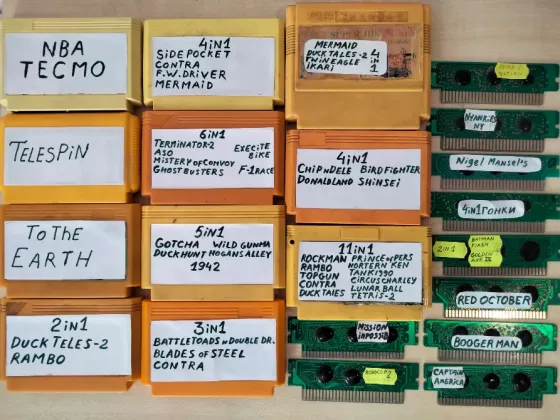 NBA
TECMO
4in1
SIDE POCKET
CONTRA
F.W.DRIVER
MERMAID
MERMAID
DUCK TALES-2
FWINEAGLE
IKARI
4
in
1
TELESPIN
6in1
TERMINATOR-2
ASO
MISTERY OF CONVOY
GHOSTBUSTERS
EXECITE
BIKE
F-1 RACE
4in1
CHIP N DELE BIRD FIGHTER
DONALDLAND SHINSEI
TO THE
EARTH
5in1
GOTCHA WILD GUNMA
DUCKHUNT HOGANS ALLEY
1942
11in1
ROCKMAN
RAMBO
TOPGUN
CONTRA
DUCK TAIES
PRINCE of PERS
NORTERN KEN
TANK1990
CIRCUS CHARLEY
LUNAR BALL
TETRIS-2
2in1
DUCK TELES-2
RAMBO
3in1
BATTLETOADS N DOUBLE DR.
BLADES of STEEL
CONTRA
MISSION
IMPOSSIB
ROBOCOP 2
NYANKEES
NY
Nigel Mansel's
4in1 ГОНКИ
2in1
BATMAN
FLASH
GOLDEN
AXE III
RED OCTOBER
BOOGERMAN
CAPTAIN
AMERICA